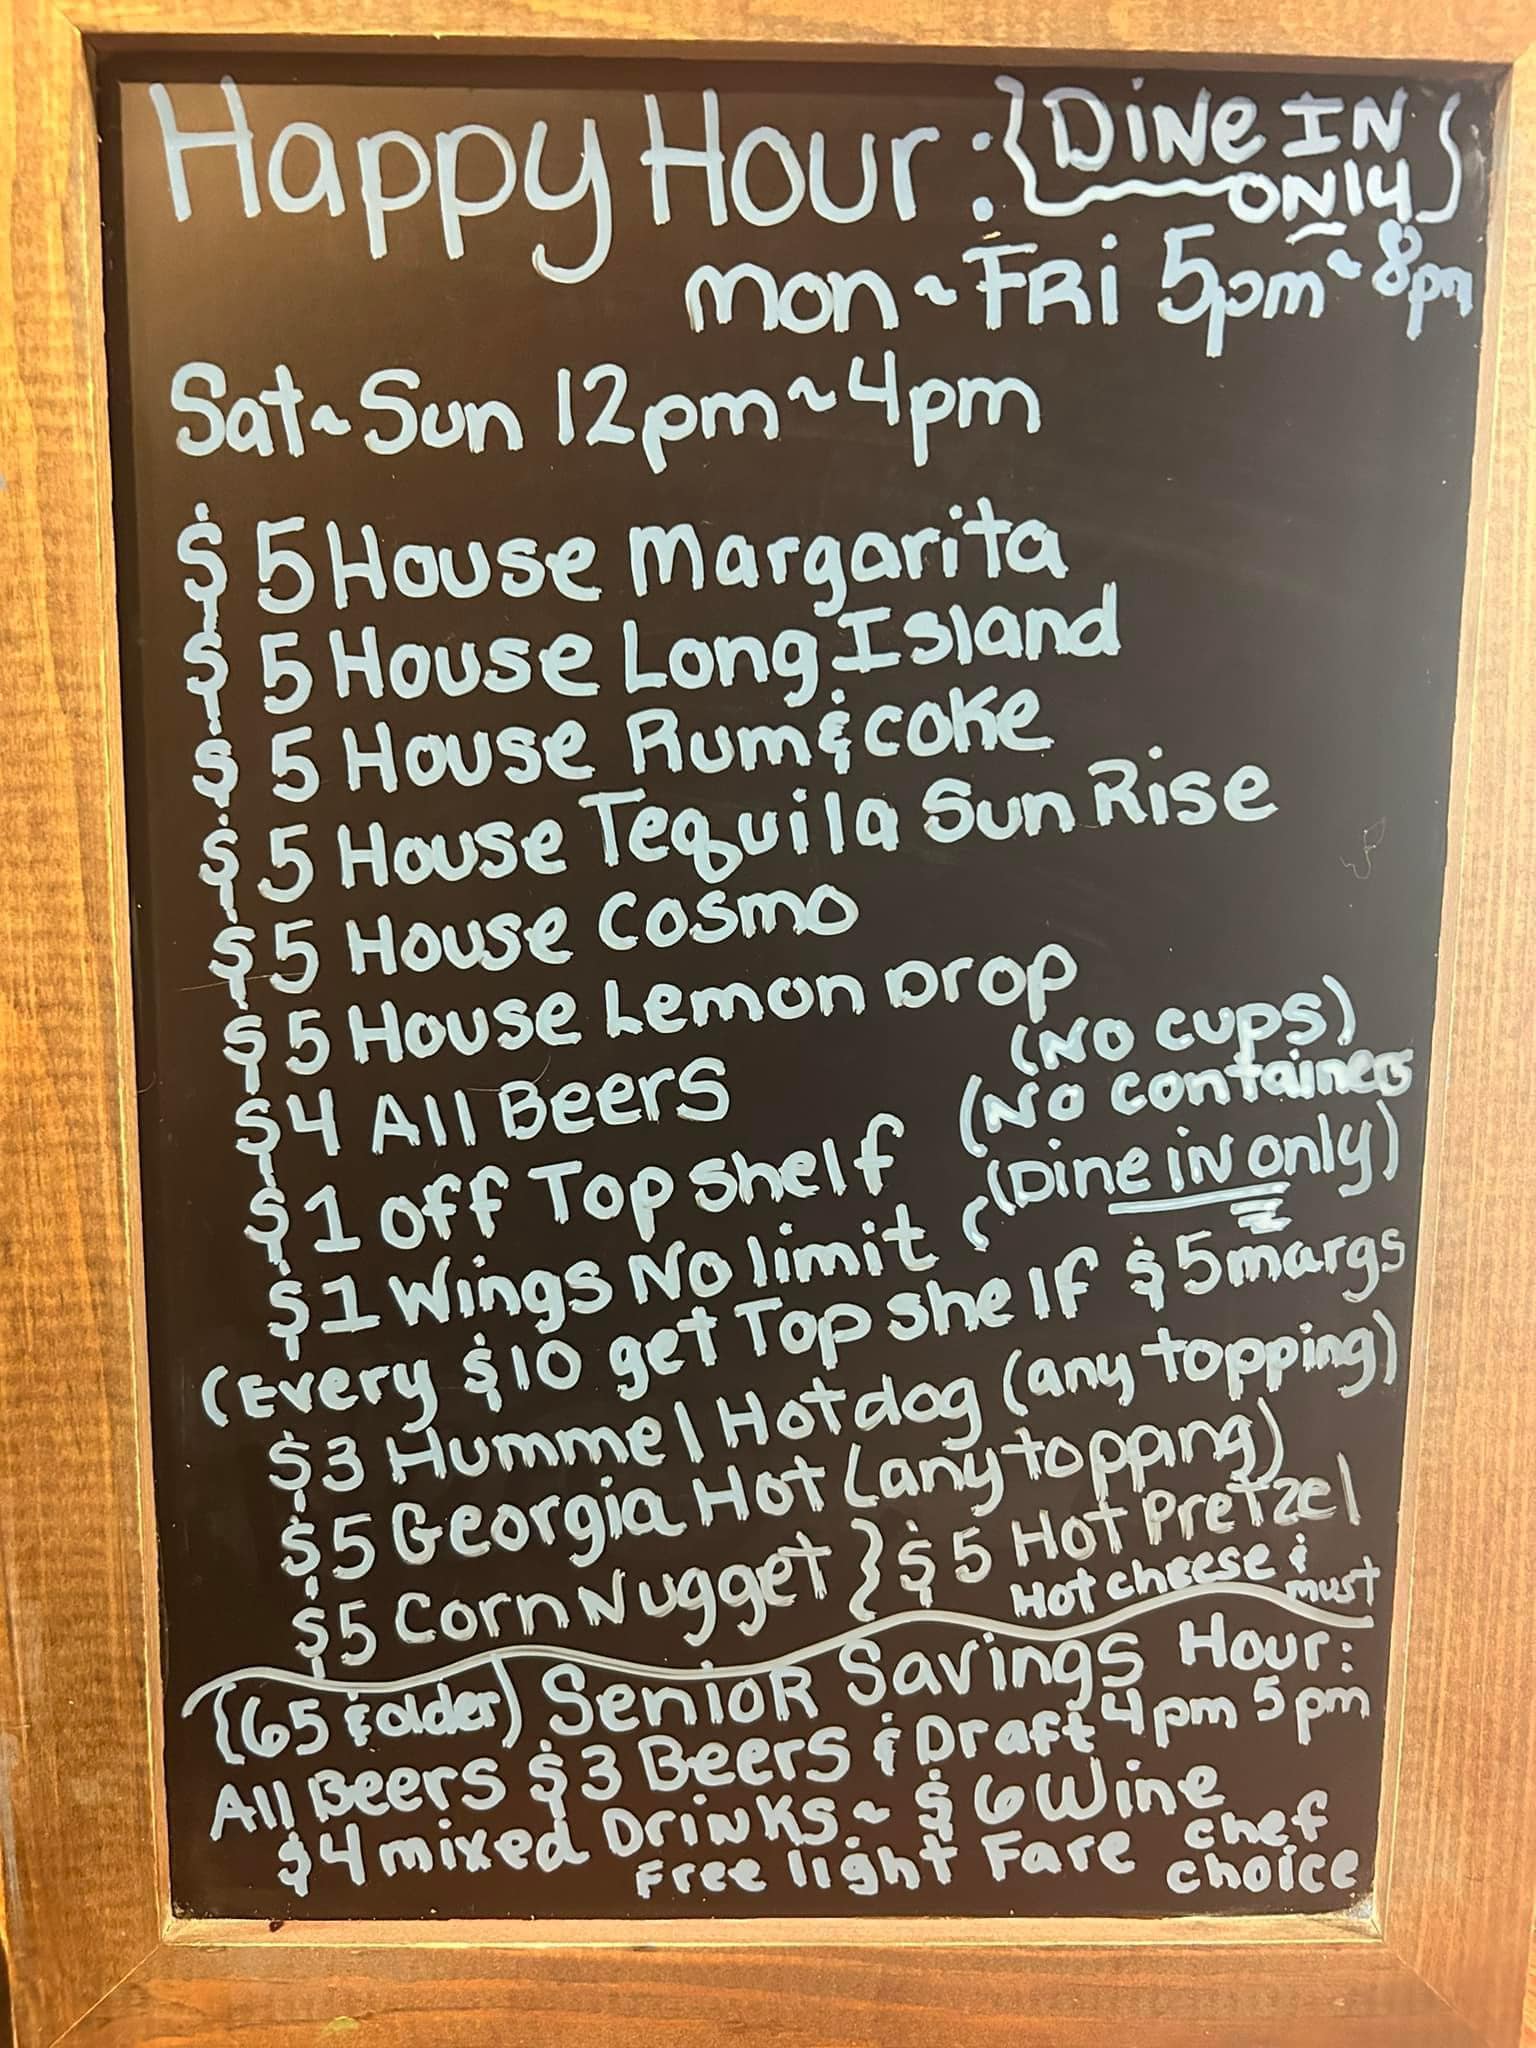 Happy Hour : {DiNe IN ONly}
mon ~ FRi 5pm ~ 8pm
Sat ~ Sun 12pm ~ 4pm
$5 House Margarita
$5 House Long Island
$5 House Rum & coke
$5 House Tequila Sun Rise
$5 House Cosmo
$5 House Lemon Drop
$4 All Beers (No cups)
$1 off Top shelf (No containers
$1 Wings No limit ((Dine iN only)
(Every $10 get Top shelf $5 margs
$3 Hummel Hot dog (any topping)
$5 Georgia Hot (any topping)
$5 Corn Nugget } $5 Hot Pretzel
Hot cheese & must
(65 & older) Senior Savings Hour:
All Beers $3 Beers & Draft 4pm 5pm
$4 mixed Drinks ~ $6 Wine
Free light Fare chef choice